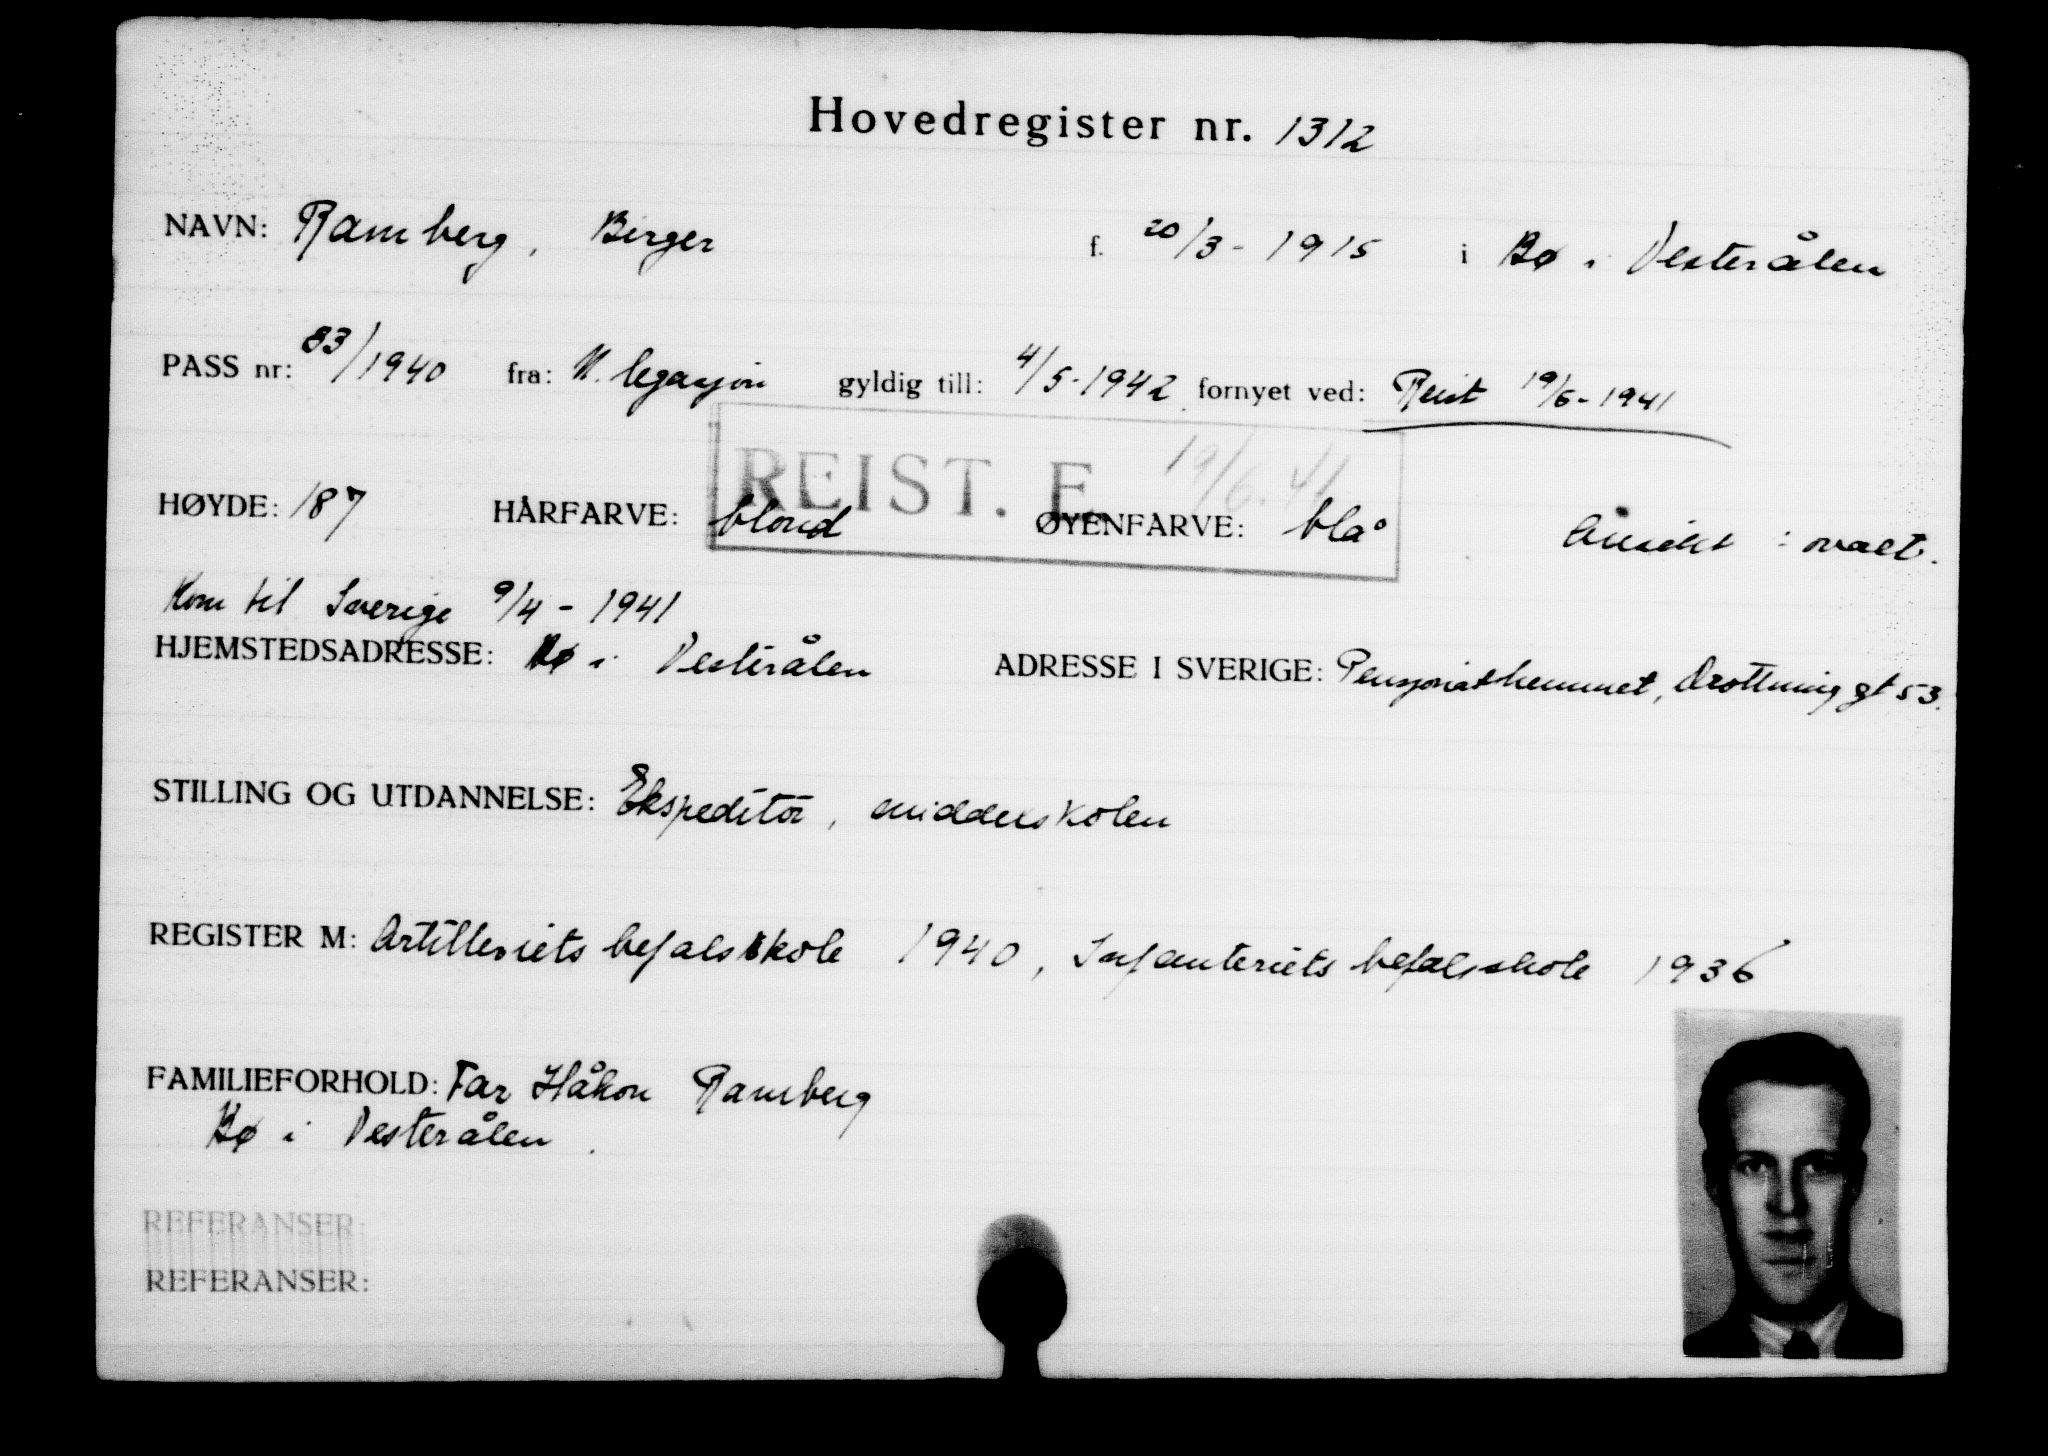 Hovedregister nr. 1312
NAVN: Ramberg, Birger f. 20/3 - 1915 i Bø i Vesterålen
PASS nr: 83/1940 fra: N. legasjon gyldig till: 4/5-1942 fornyet ved: Reist 19/6-1941
REIST. E. 19/6.41
HØYDE: 187 HÅRFARVE: blond ØYENFARVE: blå Ansikt : ovalt.
Kom til Sverige 9/4 - 1941
HJEMSTEDSADRESSE: Bø i Vesterålen ADRESSE I SVERIGE: Pensjonathemmet, Drottninggt 53.
STILLING OG UTDANNELSE: Ekspeditør, middelskolen
REGISTER M: Artilleriets befalsskole 1940, Infanteriets befalsskole 1936
FAMILIEFORHOLD: Far Håkon Ramberg
Bø i Vesterålen.
REFERANSER:
REFERANSER: